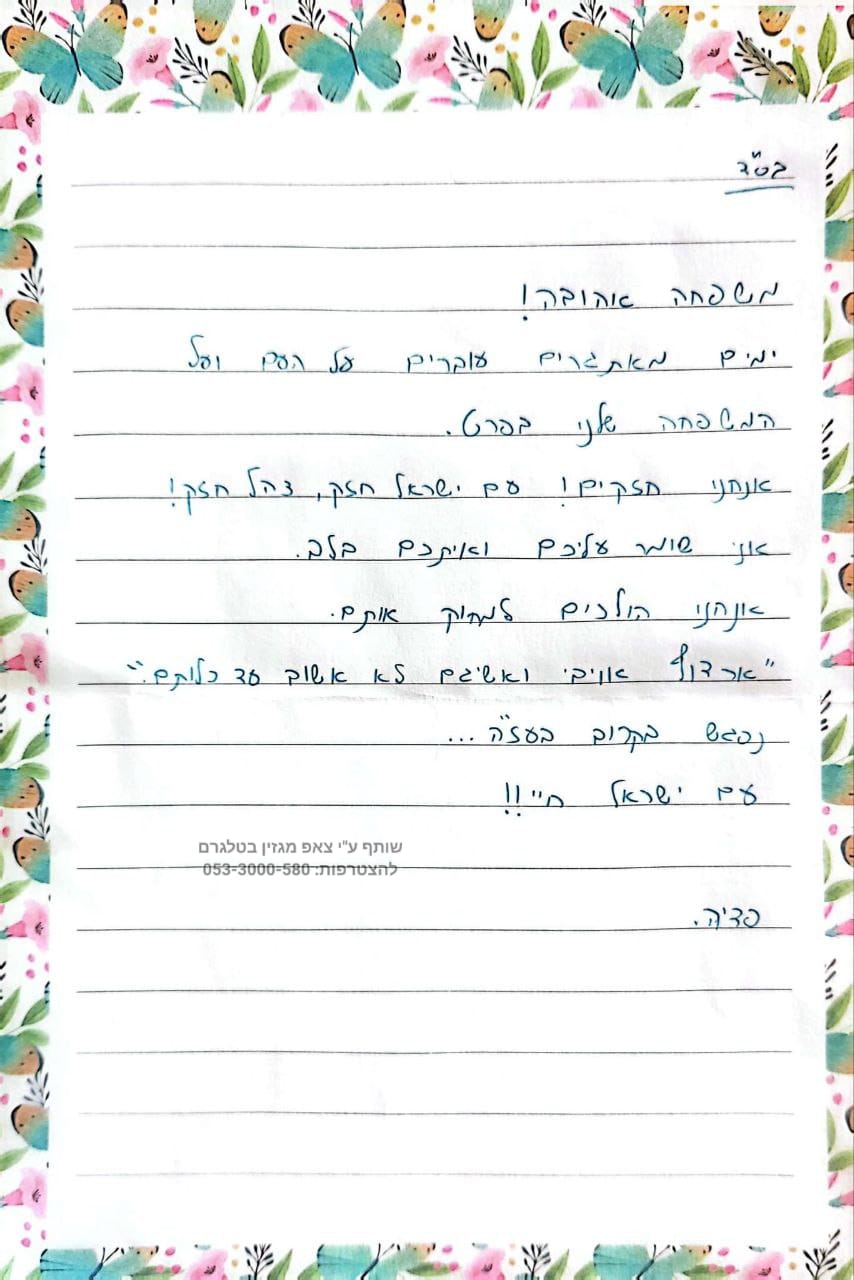 בס"ד
משפחה אהובה!
ימים מאתגרים עוברים על העם ועל
המשפחה שלנו בפרט.
אנחנו חזקים! עם ישראל חזק, צהל חזק!
אני שומר עליכם ואיתכם בלב.
אנחנו הולכים למחוק אותם.
"ארדוף אויבי ואשיגם לא אשוב עד כלותם."
נפגש בקרוב בעז"ה...
עם ישראל חיי!!
שותף ע"י צאפ מגזין בטלגרם
להצטרפות: 053-3000-580
פדיה.